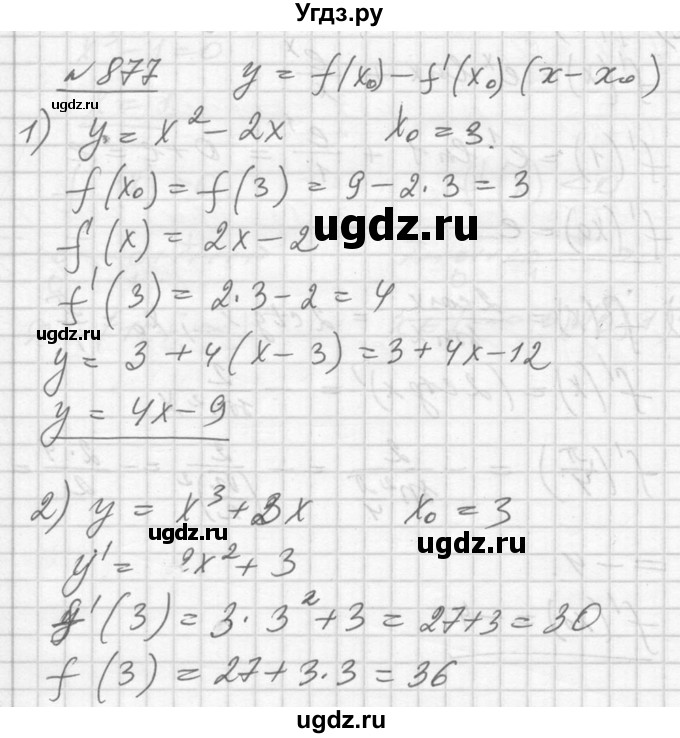 Угдз.ру
№ 877 y = f(x₀) − f'(x₀)(x − x₀)
ugdz.ru
1) y = x² − 2x x₀ = 3.
f(x₀) = f(3) = 9 − 2·3 = 3
ugdz.ru
f'(x) = 2x − 2
f'(3) = 2·3 − 2 = 4
ugdz.ru
y = 3 + 4(x − 3) = 3 + 4x − 12
y = 4x − 9
2) y = x³ + 3x x₀ = 3
ugdz.ru
ugdz.ru
y' = x² + 3
f'(3) = 3·3² + 3 = 27 + 3 = 30
f(3) = 27 + 3·3 = 36
ugdz.ru